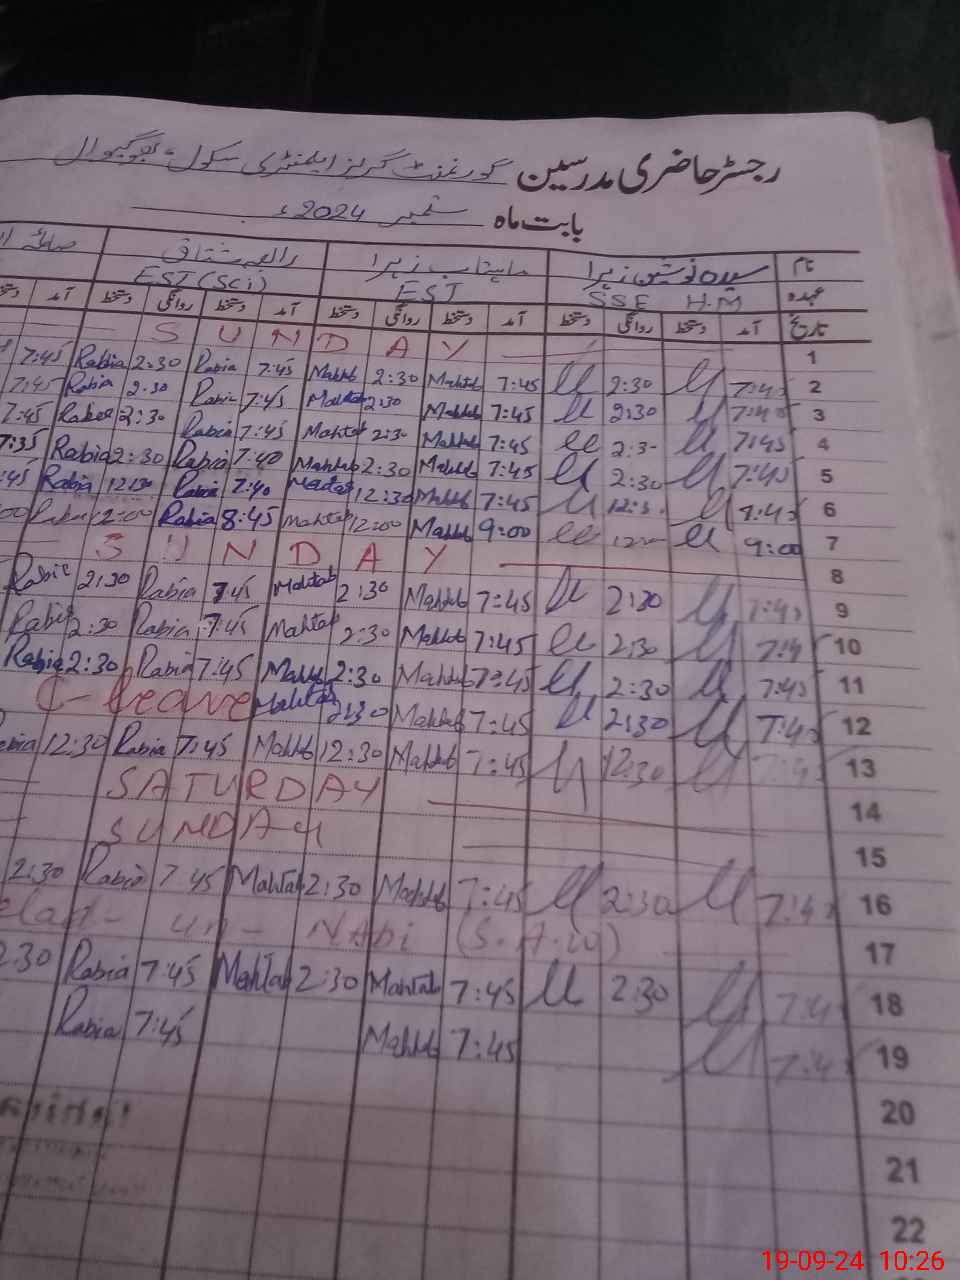 رجسٹر حاضری مدرسین گورنمنٹ گرلز ایلیمنٹری سکول
بابت ماہ ستمبر 2024ء
نام سیدہ نوشین زہرا ماہتاب زہرا رابعہ مشتاق صائمہ
عہدہ SSE H.M EST EST (Sci)
تاریخ آمد دستخط روانگی دستخط آمد دستخط روانگی دستخط آمد دستخط روانگی دستخط آمد
SUNDAY 1
7:45 Rabia 2:30 Rabia 7:45 Mahtab 2:30 Mahtab 7:45 2:30 7:45 2
7:45 Rabia 2:30 Rabia 7:45 Mahtab 2:30 Mahtab 7:45 2:30 7:45 3
7:45 Rabia 2:30 Rabia 7:45 Mahtab 2:30 Mahtab 7:45 2:30 7:45 4
7:35 Rabia 2:30 Rabia 7:40 Mahtab 2:30 Mahtab 7:45 2:30 7:45 5
:45 Rabia 12:30 Rabia 7:40 Mahtab 12:30 Mahtab 7:45 12:30 7:45 6
:00 Rabia 12:00 Rabia 8:45 Mahtab 12:00 Mahtab 9:00 9:00 7
SUNDAY 8
Rabia 2:30 Rabia 7:45 Mahtab 2:30 Mahtab 7:45 2:30 7:45 9
Rabia 2:30 Rabia 7:45 Mahtab 2:30 Mahtab 7:45 2:30 7:4 10
Rabia 2:30 Rabia 7:45 Mahtab 2:30 Mahtab 7:45 2:30 7:45 11
C-leave Mahtab 2:30 Mahtab 7:45 2:30 7:45 12
Rabia 12:30 Rabia 7:45 Mahtab 12:30 Mahtab 7:45 12:30 7:45 13
SATURDAY 14
SUNDAY 15
2:30 Rabia 7:45 Mahtab 2:30 Mahtab 7:45 2:30 7:45 16
elad-un-NABi (S.A.W) 17
2:30 Rabia 7:45 Mahtab 2:30 Mahtab 7:45 2:30 7:45 18
Rabia 7:45 Mahtab 7:45 7:45 19
20
21
22
19-09-24 10:26